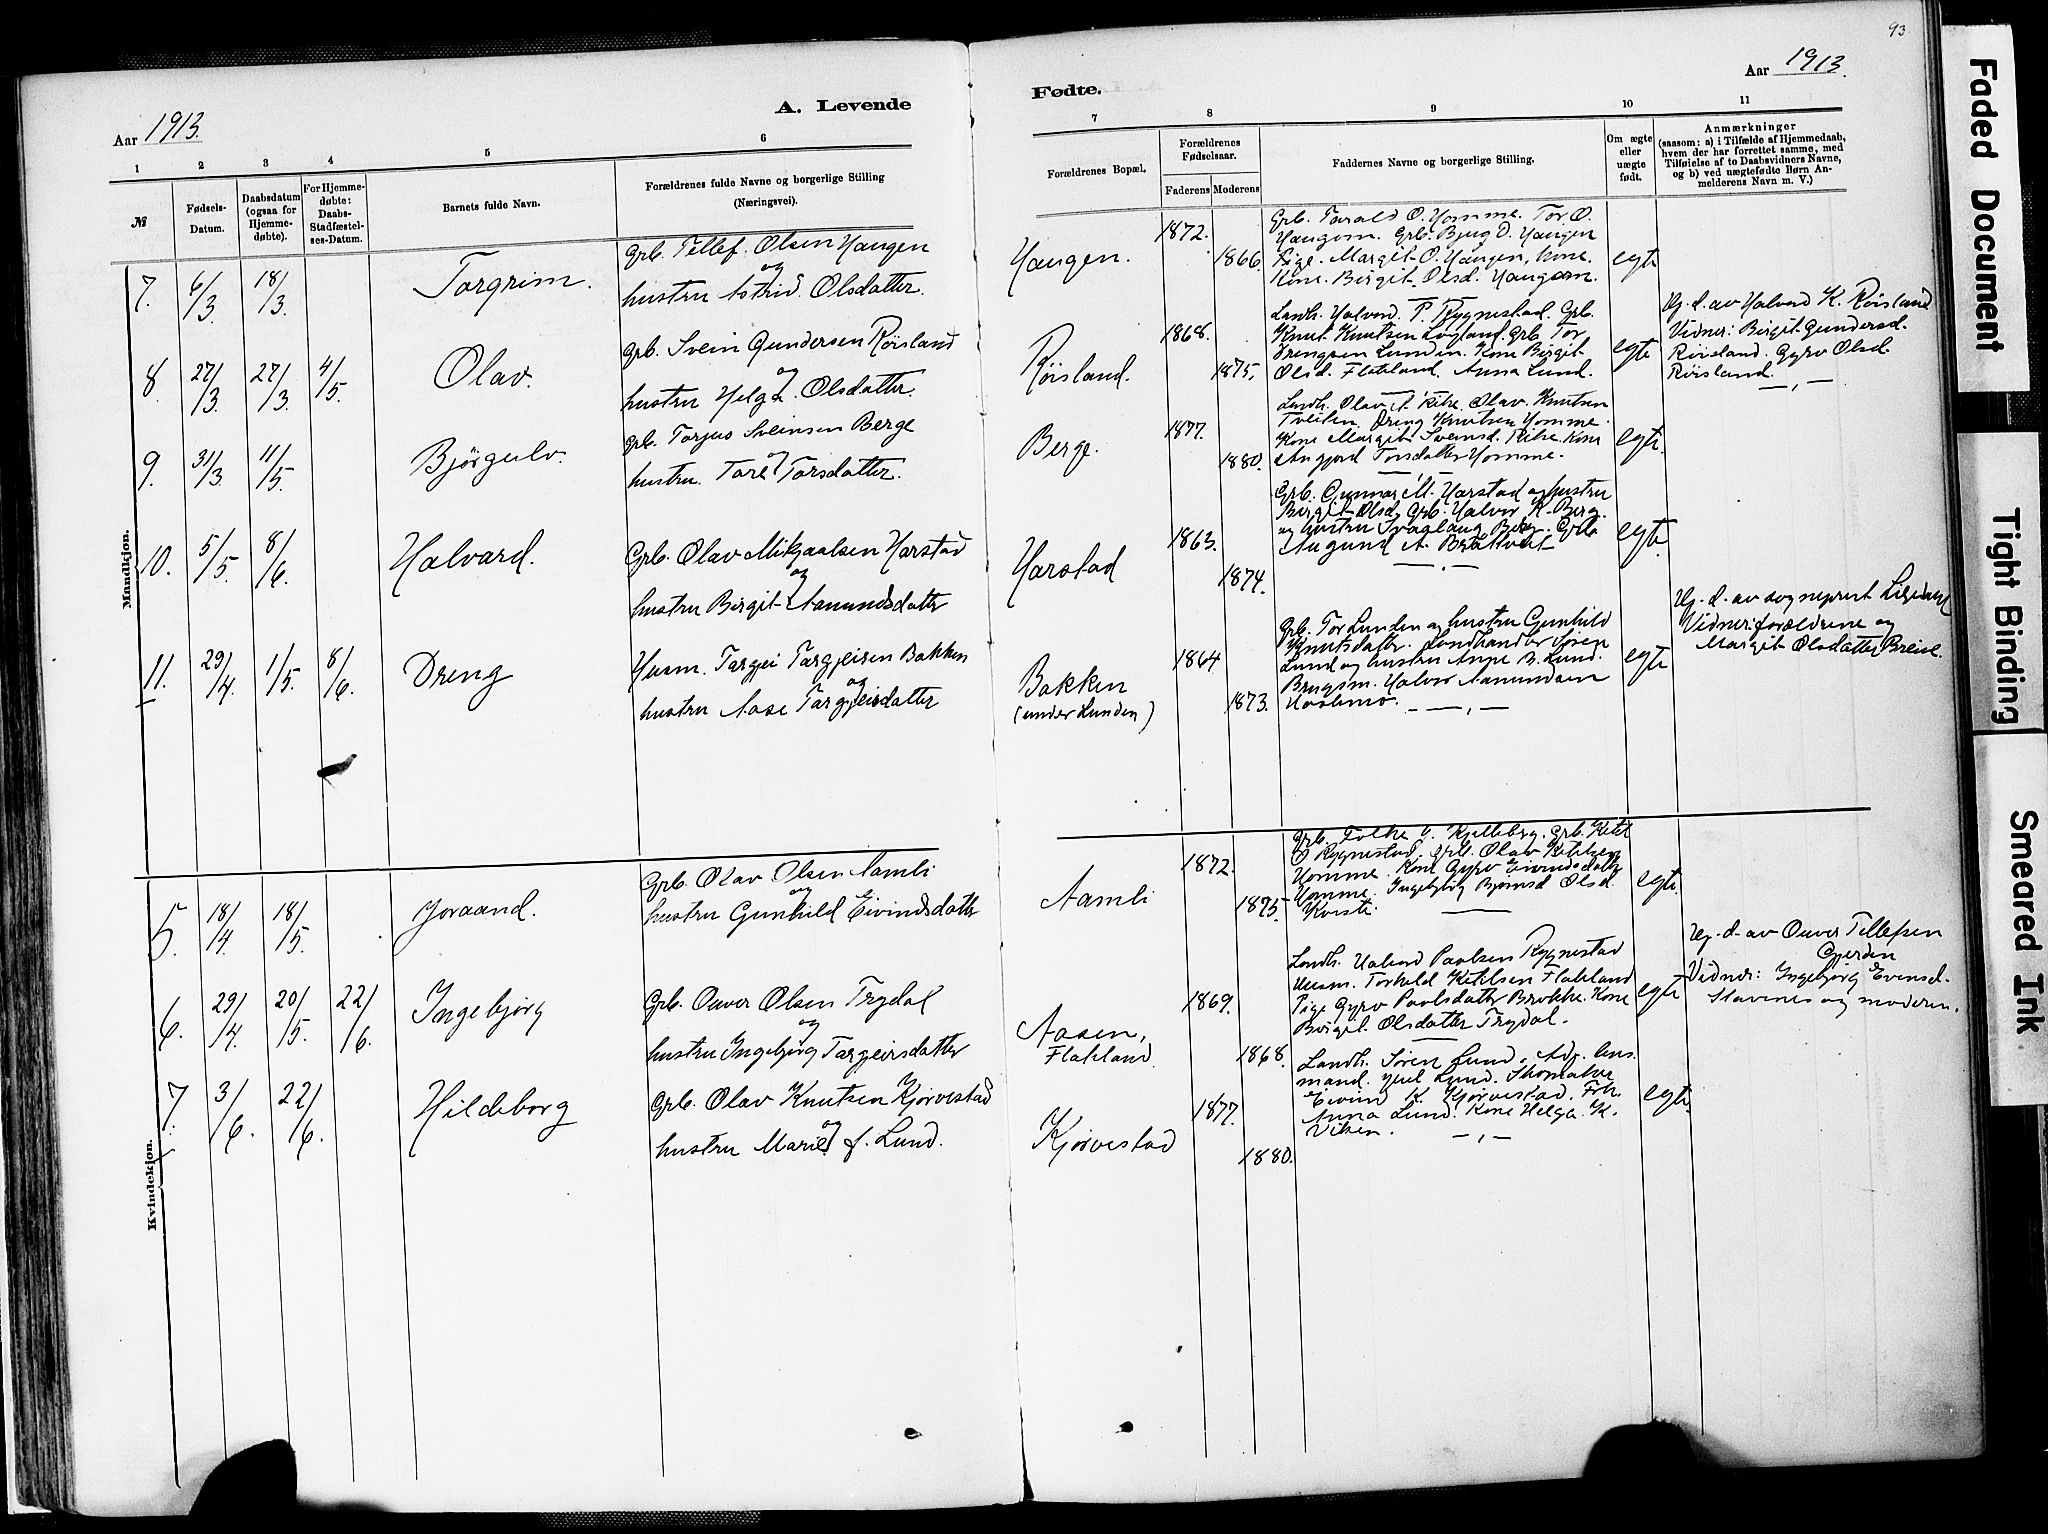 93
Aar 1913.
A. Levende
Fødte.
Aar 1913.
1 2 3 4 5 6 7 8 9 10 11
№
Fødsels-
Datum.
Daabsdatum
(ogsaa for
Hjemme-
døbte).
For Hjemme-
døbte:
Daabs-
Stadfæstel-
ses-Datum.
Barnets fulde Navn.
Forældrenes fulde Navne og borgerlige Stilling
(Næringsvei).
Forældrenes Bopæl.
Forældrenes
Fødselsaar.
Faderens Moderens
Faddernes Navne og borgerlige Stilling.
Om ægte
eller
uægte
født.
Anmærkninger
(saasom: a) i Tilfælde af Hjemmedaab,
hvem der har forrettet samme, med
Tilføielse af to Daabsvidners Navne,
og b) ved uægtefødte Børn An-
melderens Navn m. V.)
Mandkjøn.
7. 6/3 18/3. Torgrim.
Grb. Tellef. Olsen Haugen
og
hustru Astrid. Olsdatter.
Haugen. 1872. 1866.
Grb. Tarald O. Homme. Tor O.
Haugom. Grb. Bjug O. Haugen
Pige. Margit O. Haugen, Kone.
Kone. Birgit Olsd. Haugom.
egte
8. 27/3 27/3. 4/5 Olav.
grb. Svein Gundersen Røisland
og
hustru Helga. Olsdatter.
Røisland. 1868. 1875.
Landh. Halvord. P. Rygnestad. Grb.
Knut Knutsen Løgland. Grb. Tor
Drengsen Lunden. Kone Birgit
Olsd. Flateland. Anna Lund.
egte
Hj. d. av Halvord K. Røisland
Vidner: Birgit Gundersd.
Røisland. Gyro Olsd.
Røisland.
9. 31/3 11/5. Bjørgulv.
grb. Torjus Sveinsen Berge
og
hustru. Tore Torsdatter.
Berge. 1877. 1880.
Landh. Olav A. Rike. Olav. Knutsen
Tveiten. Dreng Knutsen Homme.
Kone Margit Sveinsd. Rike. Kone
Angjerd Torsdatter Homme.
egte.
10. 5/5. 8/6. Halvard.
Grb. Olav Mikjaalsen Harstad
og
hustru Birgit Aamundsdatter
Harstad 1863. 1874.
Grb. Gunnar M. Harstad og hustru
Birgit Olsd. Grb. Halvor K. Berg.
og hustru Svaalaug Berg. Grb.
Augund A. Brottveit
egte.
11. 29/4. 1/5. 8/6. Dreng
Husm. Targjei Targjeisen Bakken
og
hustru Aase Targjeisdatter
Bakken
(under Lunden) 1864 1873.
Grb. Tor Lunden og hustru Gunhild
Knutsdatter. Landhandler Søren
Lund og hustru Anne B. Lund.
Brugsm. Halvor Aamundsen
egte
Hj. d. av sogneprest
Vidner: forældrene og
Margit Olsdatter Breive.
Kvindekjøn.
5. 18/4 18/5. Joraand.
Grb. Olav Olsen Aamli
og
hustru Gunhild Eivindsdatter
Aamli 1872. 1875.
Grb. Folke O. Kjelleberg. Grb. Ketil
O. Rygnestad. Grb. Olav Ketilsen
Homme. Kone Gyro Eivindsdatter
Homme. Ingebjørg Bjørnsd Olsd.
egte.
6. 29/4. 20/5. 22/6. Ingebjørg
Grb. Ouver Olsen Trydal
og
hustru Ingebjørg Targjeirsdatter
Aasen,
Flateland. 1869. 1868.
Landh. Halvord Paalsen Rygnestad
Husm. Torkeld Ketilsen Flateland
Pige Gyro Paalsdatter Brokke. Kone
Birgit Olsdatter Trydal.
egte
Hj. d. av Ouver Tellefsen
Gjerden
Vidner: Ingebjørg Evensd.
Stavenes og moderen.
7. 3/6. 22/6. Hildeborg
Grb. Olav Knutsen Kjørvestad
og
hustru Marie f. Lund.
Kjørvestad 1877. 1880.
Landh. Søren Lund. Adj. Aas-
mand. Juel Lund. Skomaker
Eivind K. Kjørvestad. Frk.
Anna Lund. Kone Helga K.
Viken.
egte.
Faded Document
Tight Binding
Smeared Ink